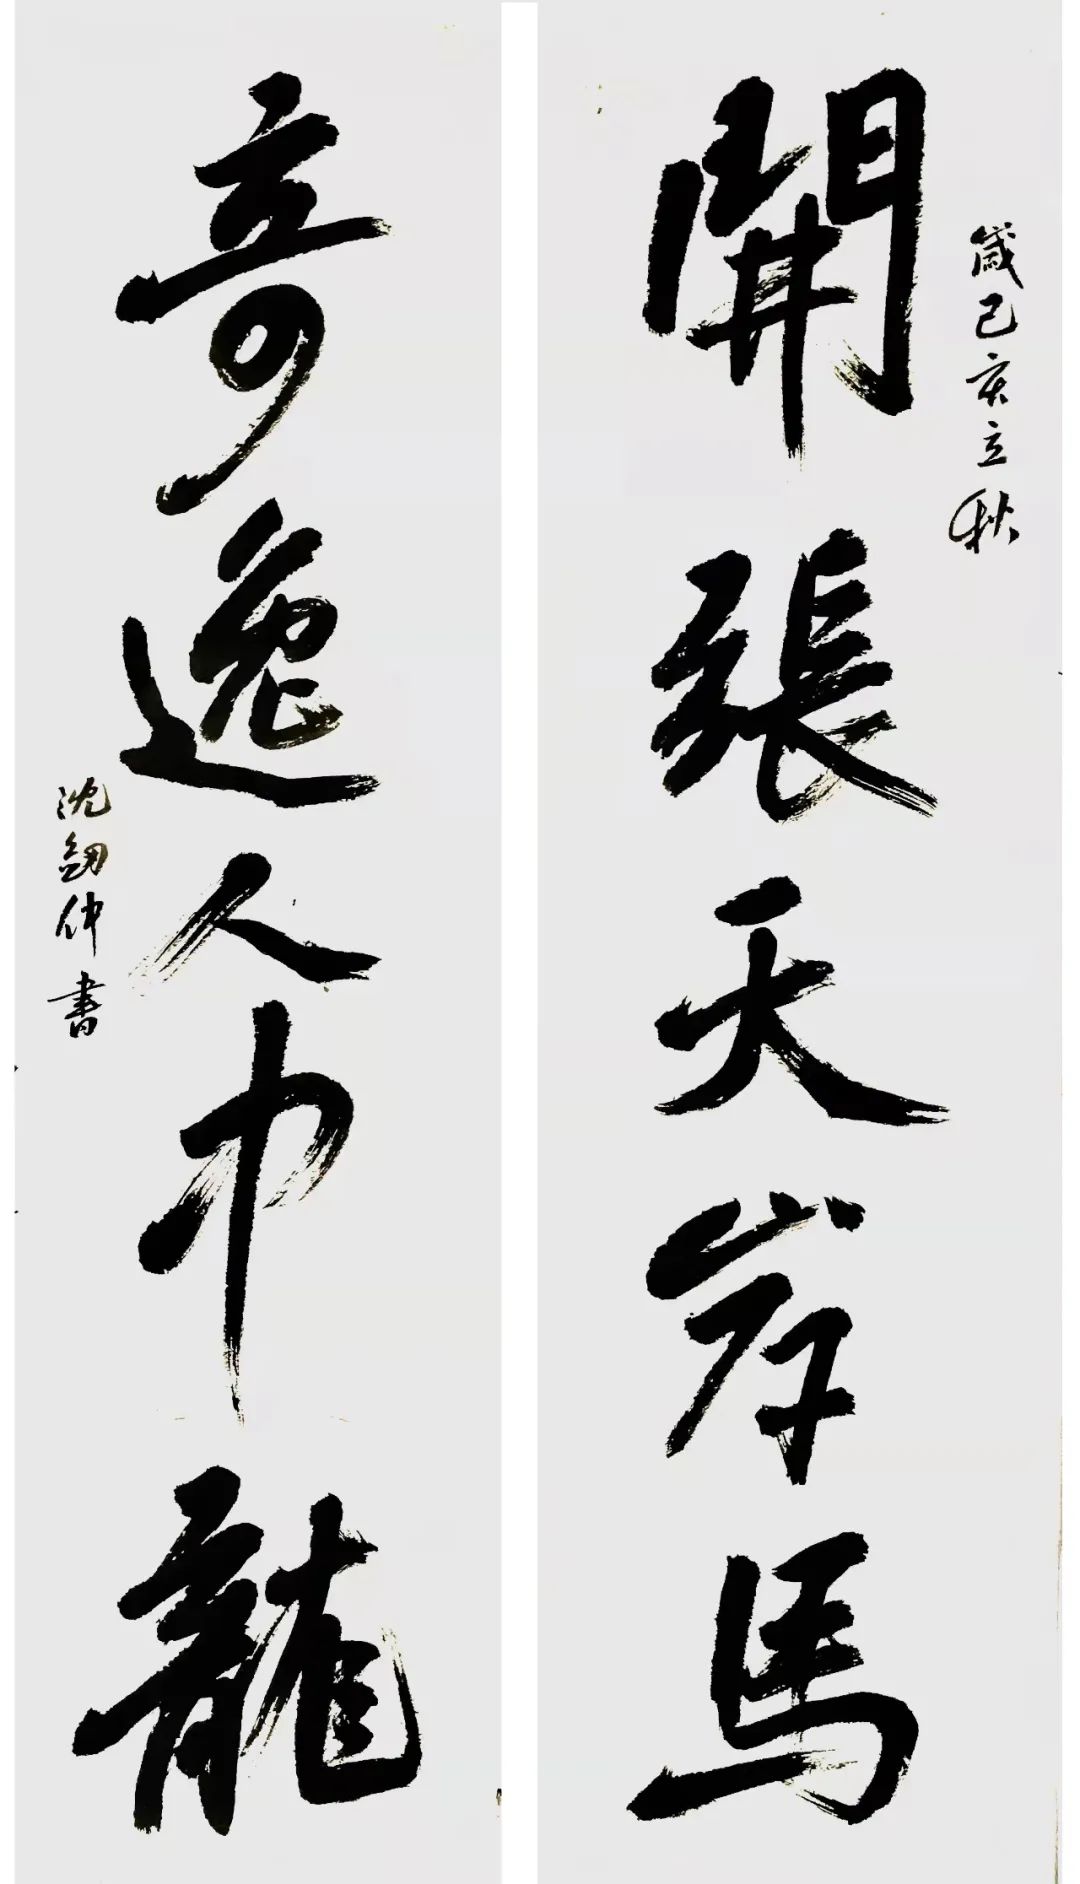 歲己亥立秋
開張天岸馬
奇逸人中龍
沈劍仲書